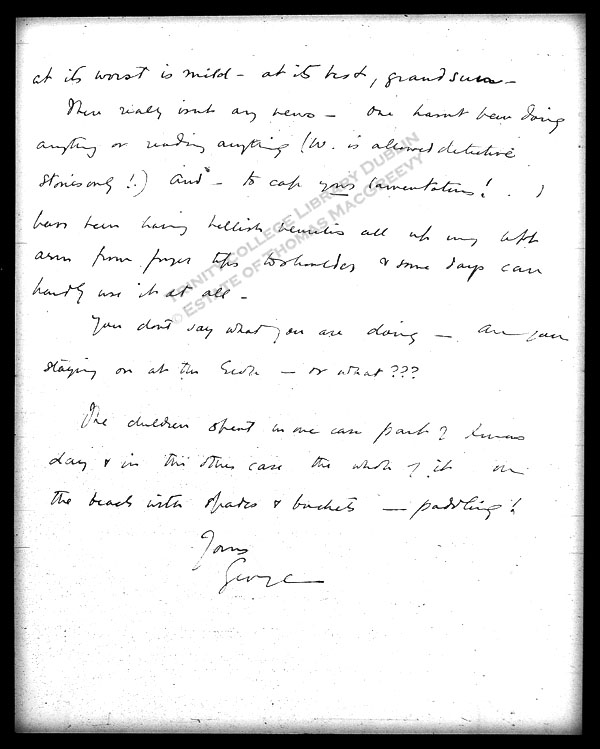 at its worst is mild – at its best, grand sun –
There really isnt any news – One hasnt been doing
anything or reading anything (W. is allowed detective
stories only!.) and – to cap yours lamentations! . I
have been having hellish neuritis all up my left
arm from finger tips to shoulder & some days can
hardly use it at all –
You dont say what you are doing – are you
staying on at the – or what???
The children spent in one case part of Xmas
day & in the other case the whole of it on
the beach with spades & buckets – paddling!
Yours
George
TRINITY COLLEGE LIBRARY DUBLIN
© ESTATE OF THOMAS MACGREEVY